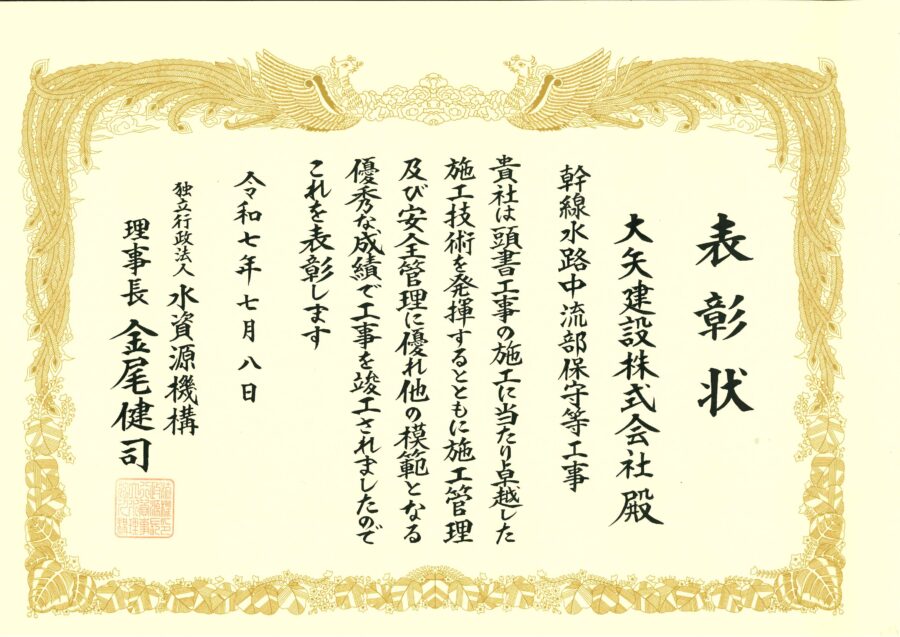 表彰状
大矢建設株式会社 殿
幹線水路中流部保守等工事
貴社は頭書工事の施工に当たり卓越した
施工技術を発揮するとともに施工管理
及び安全管理に優れ他の模範となる
優秀な成績で工事を竣工されましたので
これを表彰します
令和七年七月八日
独立行政法人 水資源機構
理事長 金尾健司